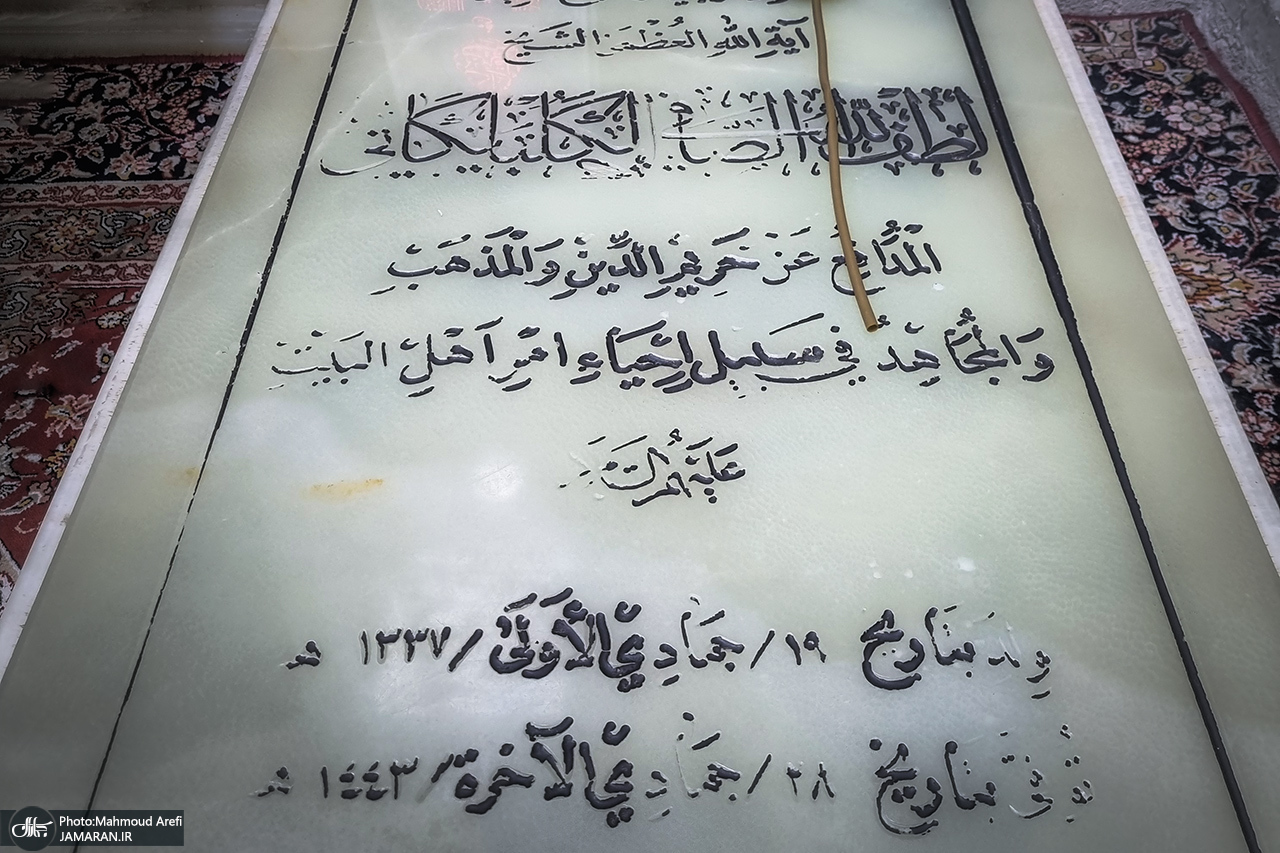 آية الله العظمى الشيخ
لطف الله الصافي الگلپايگاني
المدافع عن حريم الدين والمذهب
والمجاهد في سبيل إحياء امر اهل البيت
عليهم السلام
ولد بتاريخ ١٩/جمادي الأولى/١٣٣٧ هـ
توفي بتاريخ ٢٨/جمادي الآخرة/١٤٤٣ هـ
Photo:Mahmoud Arefi
JAMARAN.IR